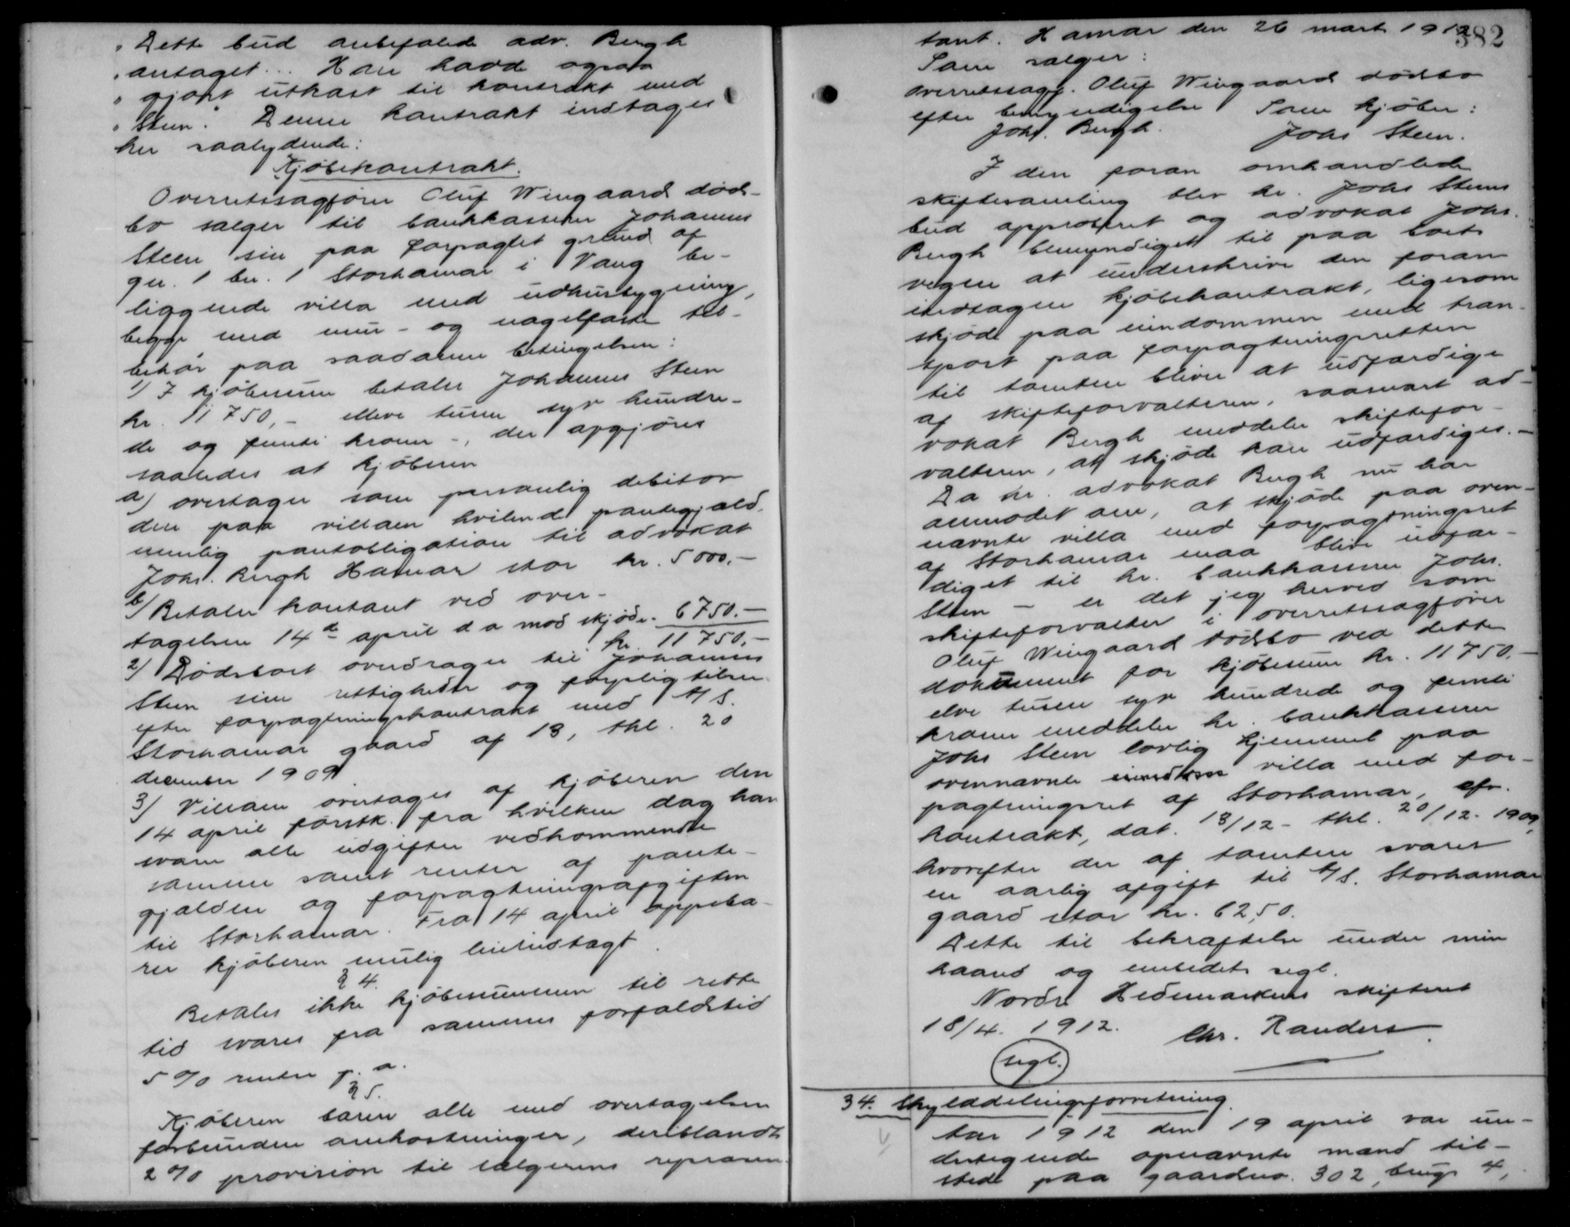 "Dette bud anbefalede adv. Bergh
"antaget... Han havde ogsaa
"gjort utkast til kontrakt med
"Steen." Denne kontrakt indtages
her saalydende:
Kjøbekontrakt.
Overretssagfører Oluf Wingaard døds-
bo sælger til bankkasserer Johannes
Steen sin paa forpagtet grund af
gnr. 1 bn. 1 Storhamar i Vang be-
liggende villa med udhusbygning,
begge med mur- og nagelfaste til-
behør paa saadanne betingelser:
1/ I kjøbesum betaler Johannes Steen
kr. 11750,- elleve tusen syv hundre-
de og femti kroner -, der opgjøres
saaledes at kjøberen
a/ overtager som personlig debitor
den paa villaen hvilende pantegjæld,
nemlig pantobligation til advokat
Johs. Bergh Hamar stor kr. 5000.-
b/ Betaler kontant ved over-
tagelsen 14de april d a mod skjøde. 6750.-
kr. 11750.-
2/ Dødsboet overdrager til Johannes
Steen sine rettigheder og forpligtelser
efter forpagtningskontrakt med A/S.
Storhamar gaard af 13, thl. 20
december 1909.
3/ Villaen overtages af kjøberen den
14 april førstk. fra hvilken dag han
svarer alle udgifter vedkommende
samme samt renter af pante-
gjælden og forpagtningsafgiften
til Storhamar. Fra 14 april oppebæ-
rer kjøberen mulig leieindtægt.
§ 4.
Betales ikke kjøbesummen til rette
tid svares fra sammes forfaldstid
5 % renter p. a.
§ 5.
Kjøberen bærer alle med overtagelsen
forbundne omkostninger, deriblandt
2 % provision til sælgerens repræsen-
382
tant. Hamar den 26 mart 1912
Som sælger:
overretssagf. Oluf Wingaard dødsbo
efter bemyndigelse Som kjøber:
Johs. Bergh. Johs Steen.
I den foran omhandlede
skiftesamling blev hr. Johs Steens
bud approberet og advokat Johs.
Bergh bemyndiget til paa boets
vegne at underskrive den foran
indtagne kjøbekontrakt, ligesom
skjøde paa eiendommen med tran-
sport paa forpagtningsretten
til tomten bliver at udfærdige
af skifteforvalteren, saasnart ad-
vokat Bergh meddeler skiftefor-
valteren, at skjøde kan udfærdiges.-
Da hr. advokat Bergh nu har
anmodet om, at skjøde paa oven-
nævnte villa med forpagtningsret
af Storhamar maa blive udfær-
diget til hr. bankkasserer Johs.
Steen - er det jeg herved som
skifteforvalter i overretssagfører
Oluf Wingaard dødsbo ved dette
dokument for kjøbesum kr. 11750.-
elve tusen syv hundrede og femti
kroner meddeler hr. bankkasserer
Johs Steen lovlig hjemmel paa
ovennævnte villa med for-
pagtningsret af Storhamar, cfr.
kontrakt, dat. 13/12 - thl. 20/12. 1909,
hvorefter der af tomten svares
en aarlig afgift til A/S. Storhamar
gaard stor kr. 62,50.
Dette til bekræftelse under min
haand og embedets segl.
Nordre Hedemarkens skifteret
18/4. 1912. Chr. Randers.
segl.
34. Skylddelingsforretning.
Aar 1912 den 19 april var un-
dertegnede opnævnte mænd til-
stede paa gaardno. 302, brugs 4,